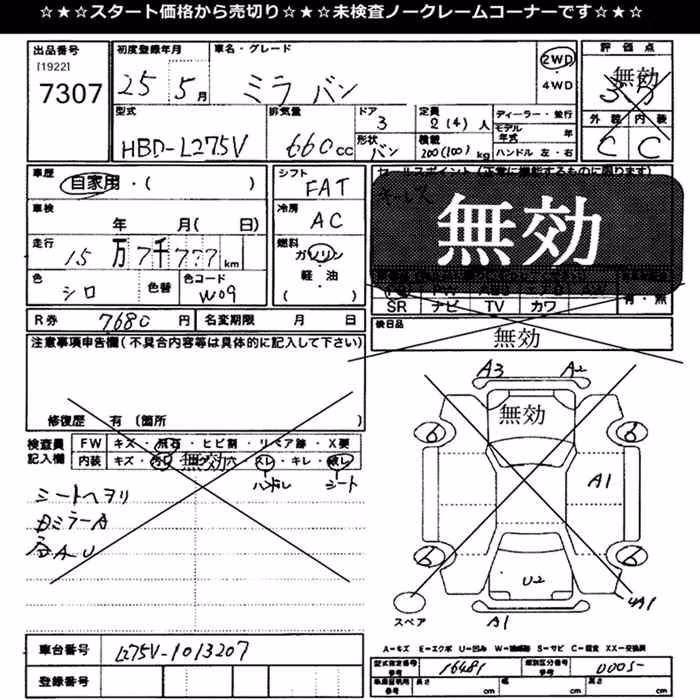 ☆★☆スタート価格から売切り☆★☆未検査ノークレームコーナーです☆★☆
出品番号
[1922]
7307
初度登録年月
25 5月
車名・グレード
ミラ バン
2WD
・
4WD
評価点
無効
外装 内装
C C
型式
HBD-L275V
排気量
660cc
ドア
3
形状
バン
定員
2(4)人
積載
200(100)kg
ディーラー・並行
モデル年式 年
ハンドル 左・右
車歴
自家用・( )
車検
年 月( 日)
走行
15万7千???km
色
シロ
色替
色コード
W09
シフト
FAT
冷房
AC
燃料
ガソリン
・
軽・油
( )
セールスポイント(正常に機能するものに限ります)
キーレス
無効
SR ナビ TV カワ
有・無
R券 7680円
名変期限 月 日
検目品
無効
注意事項申告欄(不具合内容等は具体的に記入して下さい)
修復歴 有 (箇所 )
検査員
記入欄
FW キズ・飛石・ヒビ割・リペア跡・X要
内装 キズ・汚れ 無効 穴・スレ・キレ・破レ
ハンドル シート
シートヘタリ
DミラーA
各A U
A3 A2
無効
6 6
A1
6 6
U2
4A1
A1
スペア
A=キズ E=エクボ U=凹み W=補修跡 S=サビ C=腐食 XX=交換済
車台番号
L275V-1013207
登録番号
型式指定番号 参考
16481
類別区分番号 参考
0005
長さ cm
幅 cm
高さ cm